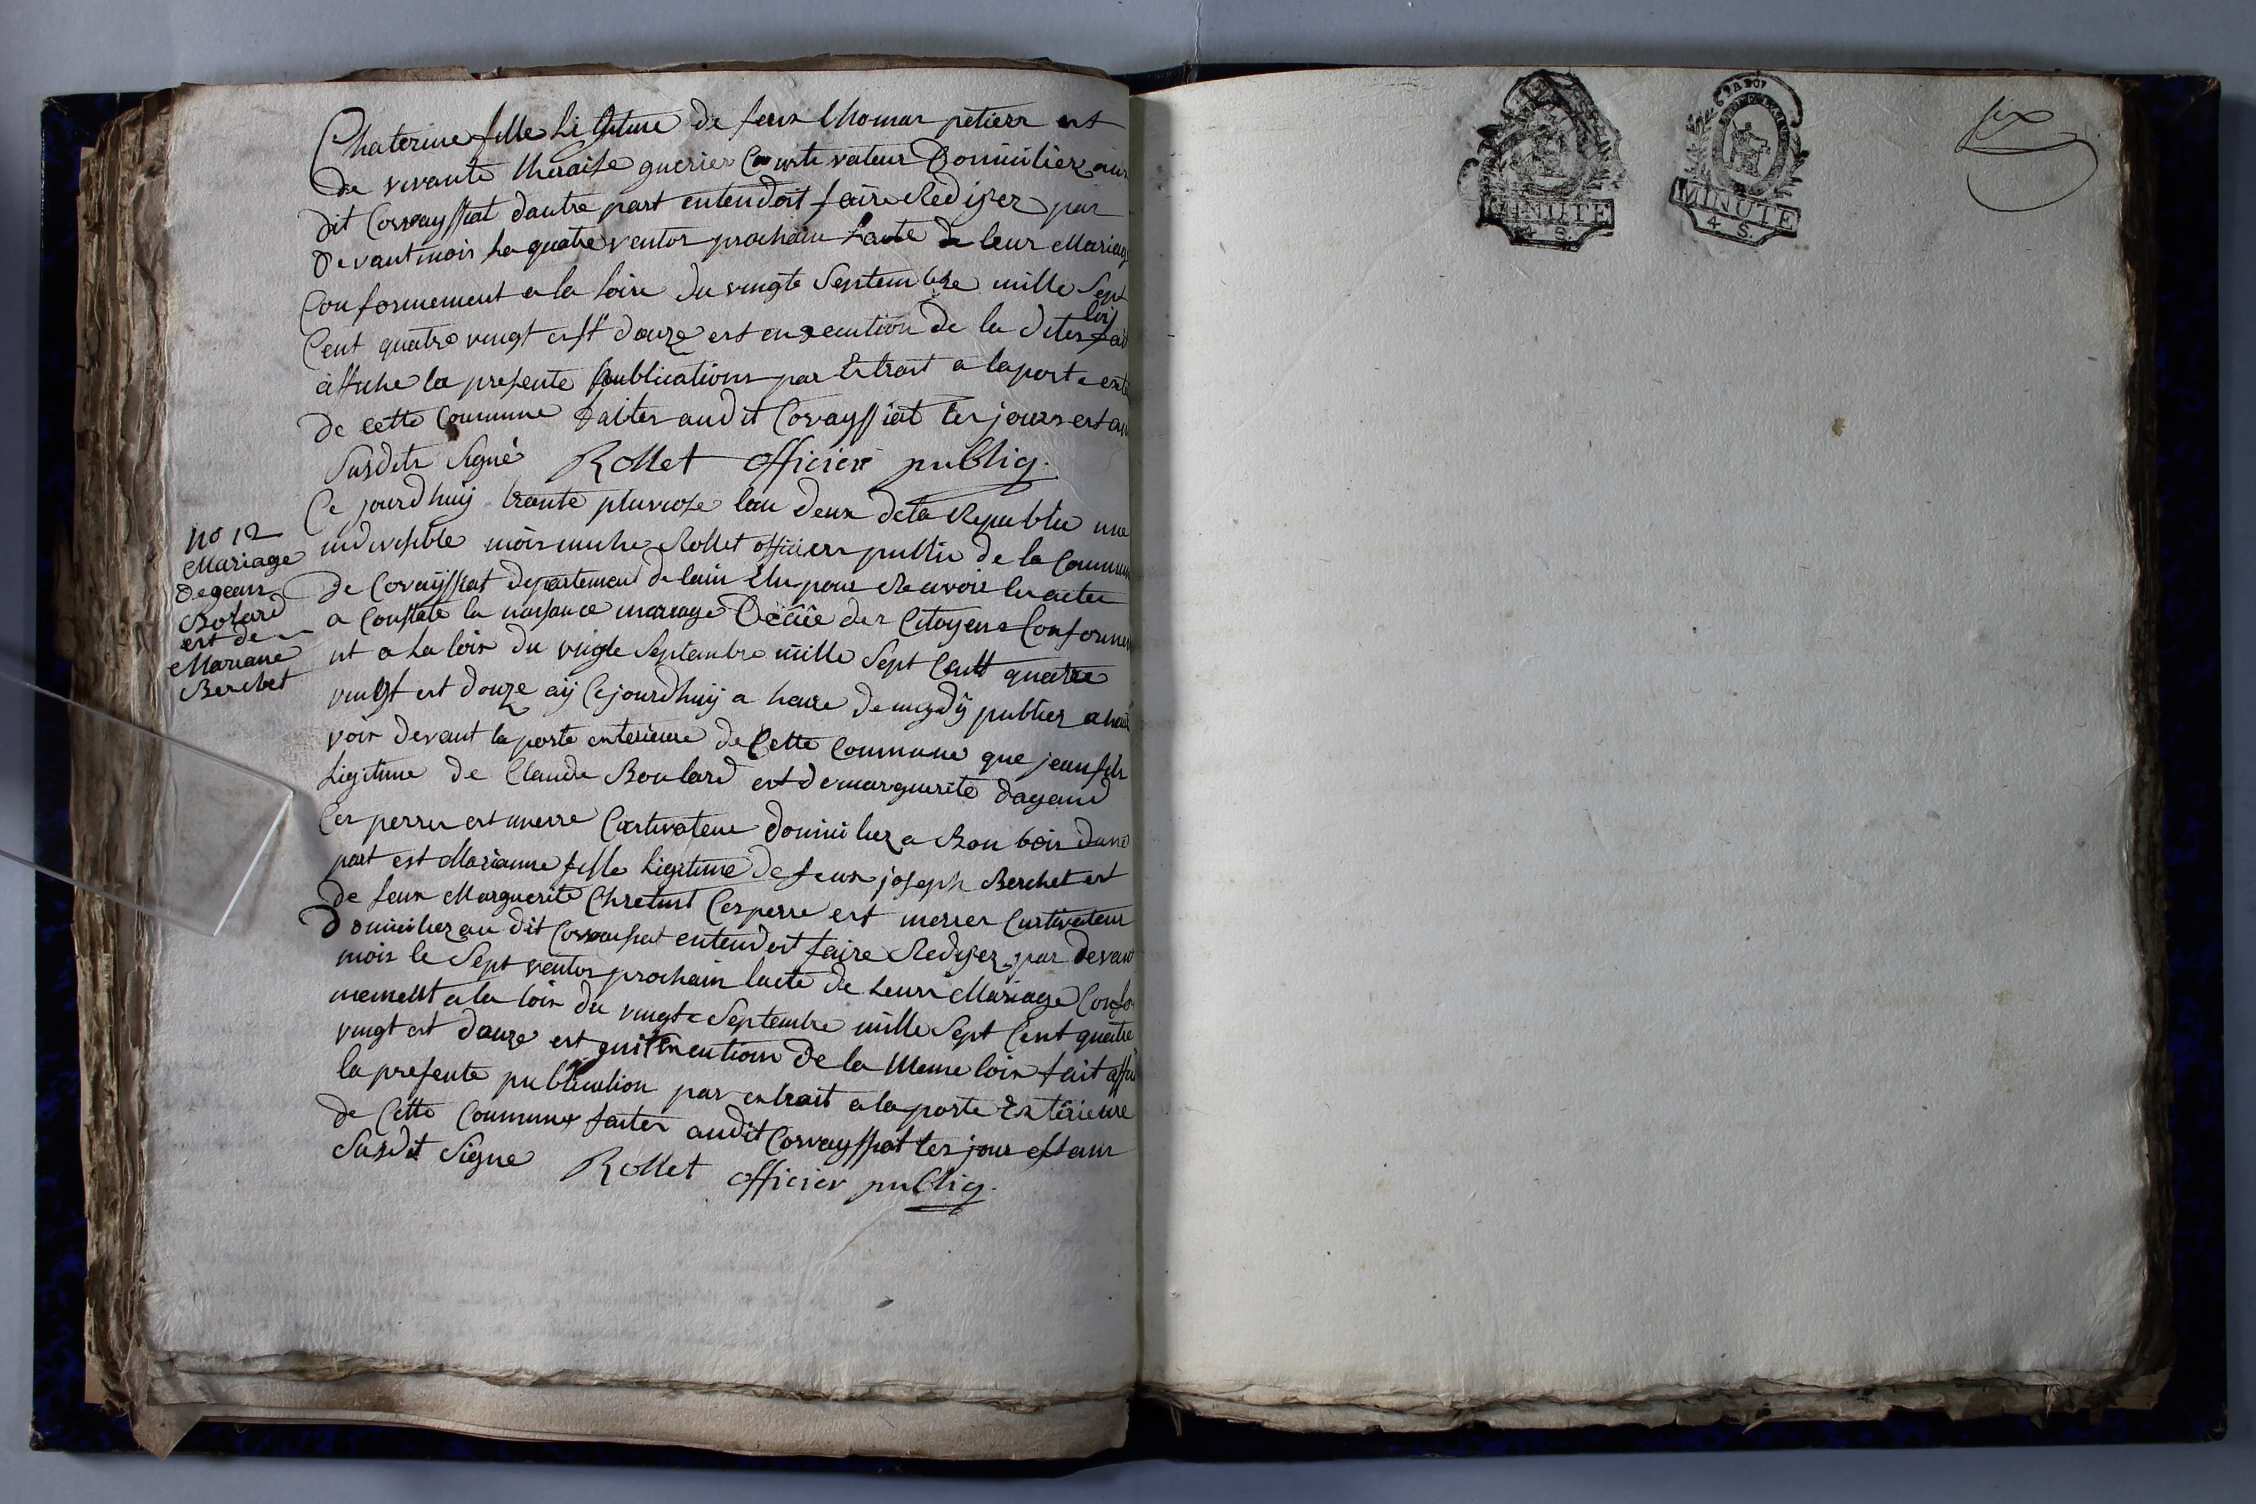 Chaterine fille Ligitime de feux thomas petierr est
de vivante theraise guerier Courtivateur Domicilier au
dit Corvayssiat dautre part entendoit faire Rediger par
devant mois le quatre ventos prochain lacte de leur Mariage
Conformement a la loire du vingte Septembre mille Sept
Cent quatre vingt est douze est en execution de la dites loix fait
affiche la presente publications par Extrait a la porte exte
de cette Commune faites audit Corvayssiat les jours est an
Susdits Signé Rollet officier publiq.
Ce jourdhuij trante pluviose lan deux de la Republic une
indivisible mois miche Rollet officier public de la Commune
de Corvayssiat departement de lain Elu pour Reavoir les actes
a Constate la naissance mariage Décée des Citoyens Conformem
nt a La loix du vingte Septembre mille Sept Cent quatre
vingt est douze aij Cejourdhuij a heure de mydij publier a haute
voix devant la porte exterieure de Cette Commune que jean fils
Ligitime de Claude Boulard est de marguerite dagand
Ces perres est merre Cartivateur domicilier a Bonbois dune
part est Marianne fille Ligitime de feux joseph Berchet est
de feux Marguerite Chretint Ces perre est merres Curtivateur
Domicilier au dit Corvayssiat entendoit faire Rediger par devant
mois le Sept ventos prochain lacte de Leurs Mariage Confor
mement a la loix du vingt Septembre mille Sept Cent quatre
vingt est douze est de la Meme loix fait affiche
la presente publication par extrait a la porte Exterieure
de Cette Commune faites audit Corvayssiat les jour est ans
Susdit Signe Rollet officier publiq.
No 12
Mariage
de jean
Bolard
est de
Mariane
Berchet
MINUTE
4 S.
MINUTE
4 S.
six